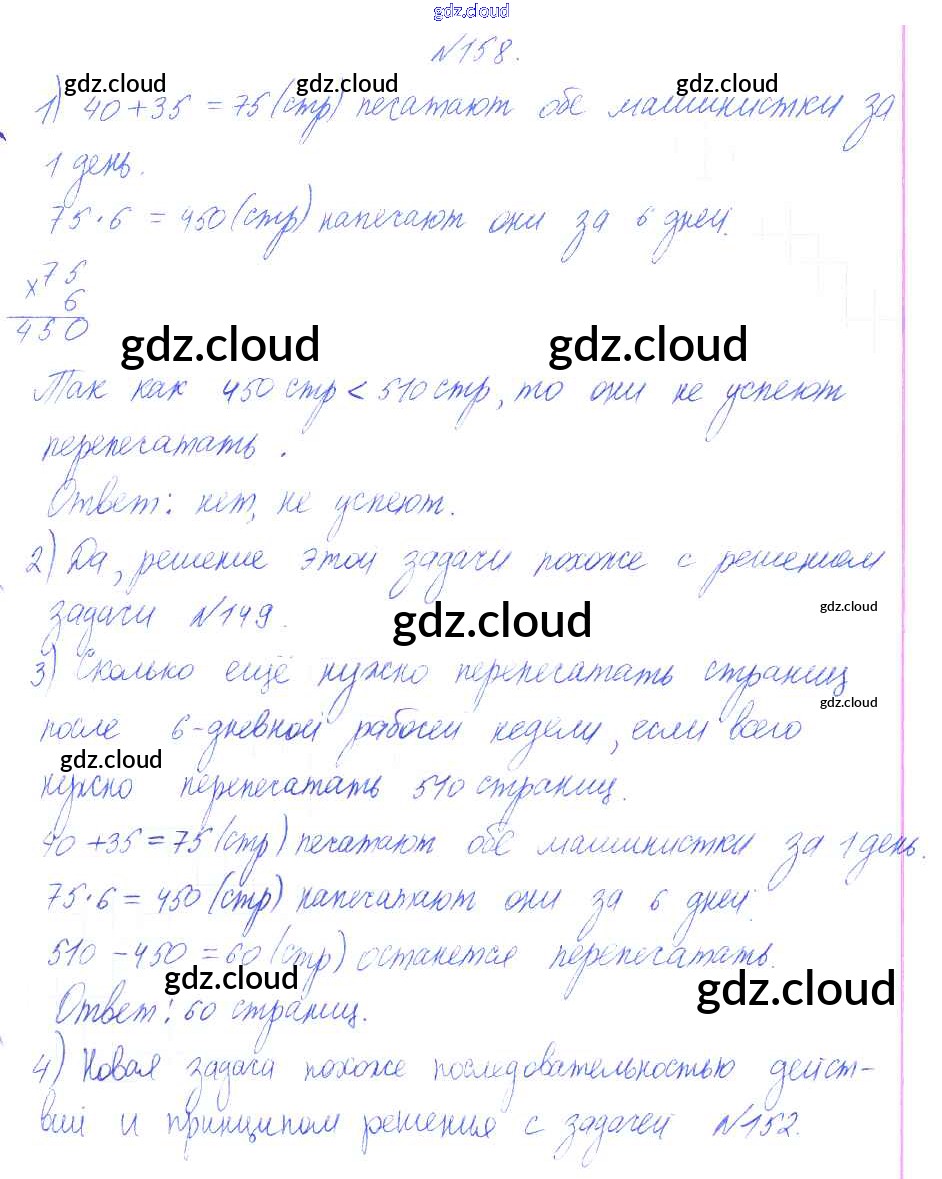 gdz.cloud
№158.
gdz.cloud gdz.cloud gdz.cloud
1) 40+35 = 75 (стр) печатают обе машинистки за
1 день.
75·6 = 450 (стр) напечатают они за 6 дней.
×75
6
450
gdz.cloud gdz.cloud
Так как 450 стр < 510 стр, то они не успеют
перепечатать.
Ответ: нет, не успеют.
2) Да, решение этой задачи похоже с решением
gdz.cloud gdz.cloud
задачи №149.
3) Сколько ещё нужно перепечатать страниц
gdz.cloud
после 6-дневной рабочей недели, если всего
gdz.cloud
нужно перепечатать 510 страниц.
40+35=75 (стр) печатают обе машинистки за 1 день.
75·6 = 450 (стр) напечатают они за 6 дней.
510-450 = 60 (стр) останется перепечатать.
gdz.cloud gdz.cloud
Ответ: 60 страниц.
4) Новая задача похоже последовательностью дейст-
вий и принципом решения с задачей №152.